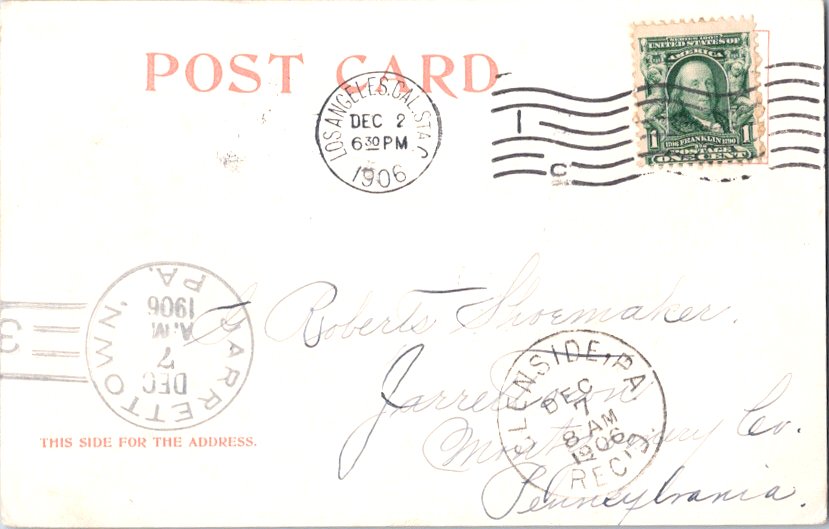 POST CARD
LOS ANGELES, CAL. STA C
DEC 2
6 30 PM
1906
1
C
SERIES 1902
UNITED STATES OF
AMERICA
1706 FRANKLIN 1790
POSTAGE
1 ONE CENT 1
JARRETTOWN, PA.
DEC
7
A.M.
1906
3
Roberts Shoemaker.
Jarrettown
Montgomery Co.
Pennsylvania.
GLENSIDE, PA.
DEC
7
8 AM
1906
REC'D.
THIS SIDE FOR THE ADDRESS.